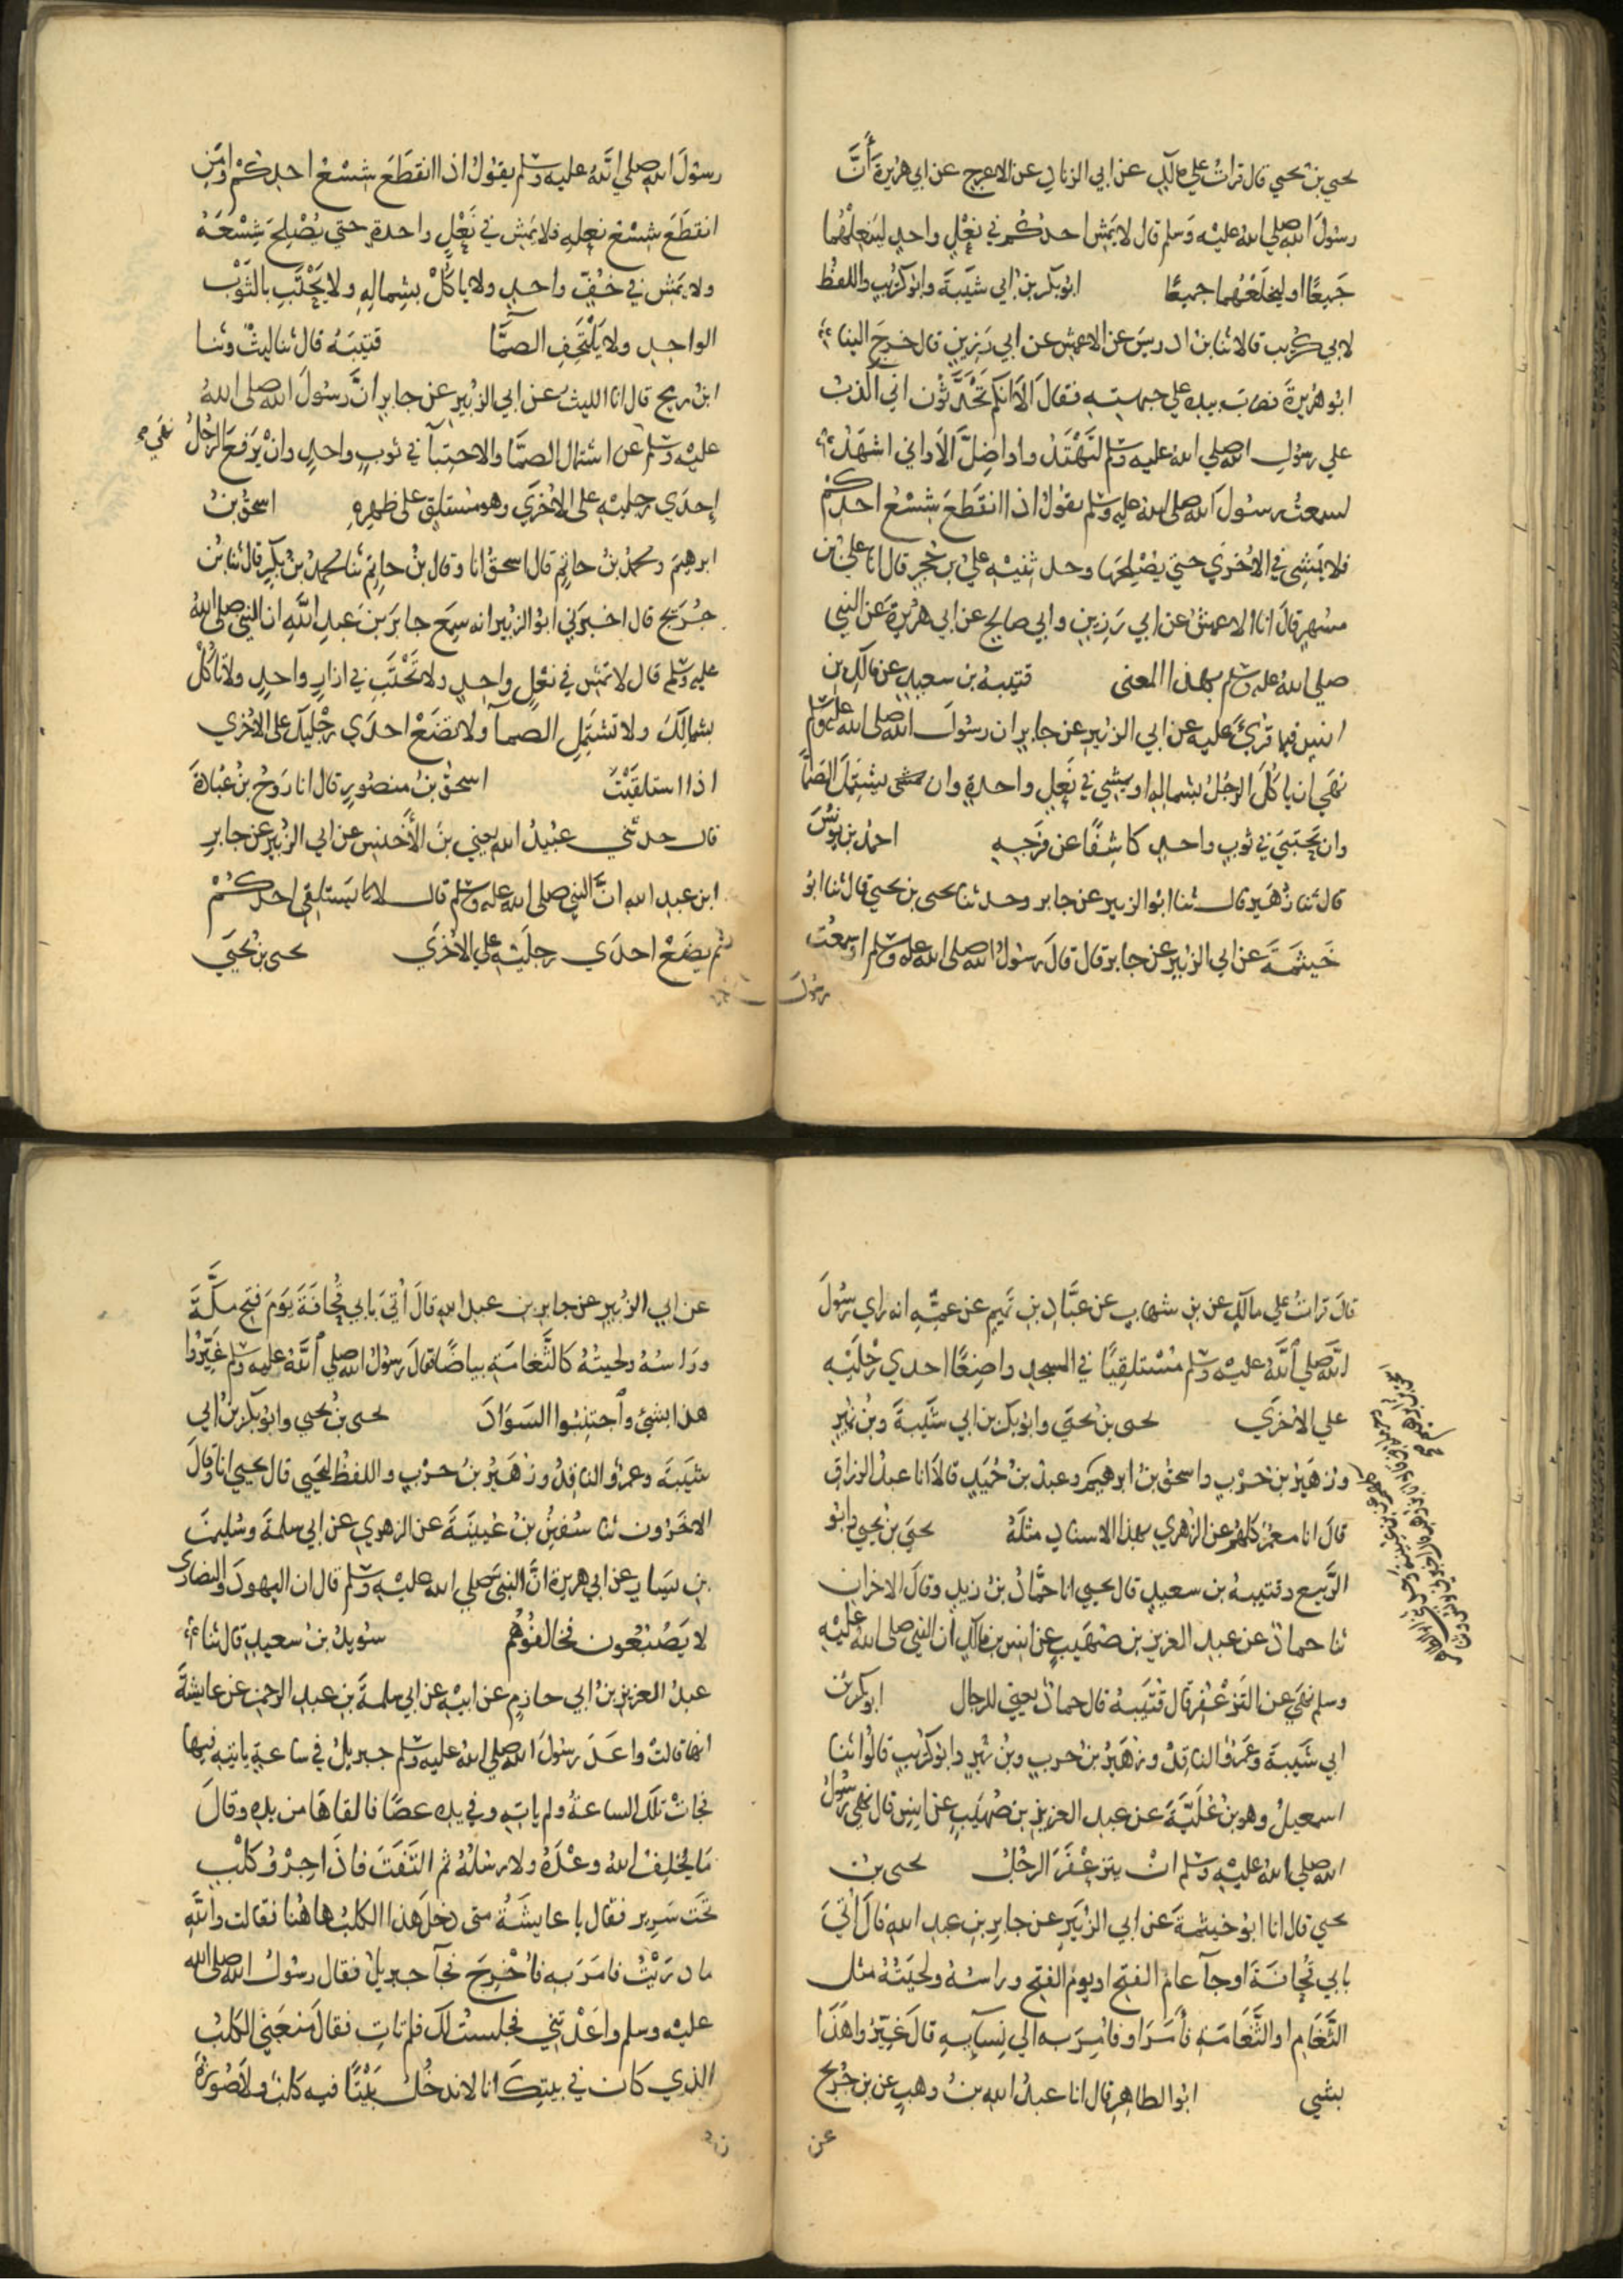 يحيي بن يحيي قال قرات علي مالك عن ابي الزناد عن الاعرج عن ابي هريرة أَنَّ
رسول الله صلي الله عليه وسلم قال لا يمش احدكم في نعل واحد لينعلهما
جميعًا او ليخلعهما جميعًا ابو بكر بن ابي شيبة وابو كريب واللفظ
لابي كريب قالا ثنا بن ادريس عن الاعمش عن ابي رزين قال خرج الينا
ابو هريرة فضرب بيده علي جبهته فقال الا انكم تحدثون اني اكذب
علي رسول الله صلي الله عليه وسلم لتهتدوا واضل الا واني اشهد
لسمعت رسول الله صلى الله عليه وسلم يقول اذا انقطع شسع احدكم
فلا يمشي في الاخري حتي يصلحها وحدثنيه علي بن حجر قال انا علي بن
مسهر قال انا الاعمش عن ابي رزين وابي صالح عن ابي هريرة عن النبي
صلي الله عليه وسلم بهذا المعنى قتيبة بن سعيد عن مالك بن
انس فيما قرئ عليه عن ابي الزبير عن جابر ان رسول الله صلى الله عليه وسلم
نهي ان ياكل الرجل بشماله او يمشي في نعل واحدة وان يشتمل الصمّا
وان يحتبي في ثوب واحد كاشفًا عن فرجه احمد بن يونس
قال ثنا زهير قال ثنا ابو الزبير عن جابر وحدثنا يحيى بن يحيي قال ثنا ابو
خيثمة عن ابي الزبير عن جابر قال قال رسول الله صلى الله عليه وسلم او سمعت
رسول
رسول الله صلي الله عليه وسلم يقول اذا انقطع شسع احدكم او من
انقطع شسع نعله فلا يمش في نعل واحدة حتي يصلح شسعه
ولا يمش في خف واحد ولا ياكل بشماله ولا يحتب بالثوب
الواحد ولا يلتحف الصمّا قتيبة قال ثنا ليث وثنا
ابن رمح قال انا الليث عن ابي الزبير عن جابر ان رسول الله صلى الله
عليه وسلم نهي عن اشتمال الصمّا والاحتبآ في ثوب واحد وان يرفع الرجل
إحدي رجليه على الاخري وهو مستلق على ظهره اسحق بن
ابرهيم ومحمد بن حاتم قال اسحق انا وقال بن حاتم ثنا محمد بن بكر قال ثنا بن
جريج قال اخبرني ابو الزبير انه سمع جابر بن عبد الله ان النبي صلى الله
عليه وسلم قال لا تمش في نعل واحد ولا تحتب في ازار واحد ولا تاكل
بشمالك ولا تشتمل الصمآ ولا تضع احدي رجليك على الاخري
اذا استلقيت اسحق بن منصور قال انا روح بن عبادة
قال حدثني عبيد الله يعني بن الأخنس عن ابي الزبير عن جابر
ابن عبد الله ان النبي صلى الله عليه وسلم قال لا يستلقي احدكم
ثم يضع احدي رجليه علي الاخري يحيى بن يحيى
قال قرات علي مالك عن بن شهاب عن عباد بن تميم عن عمه انه راي رسول
الله صلي الله عليه وسلم مستلقيًا في المسجد واضعًا احدي رجليه
علي الاخري يحيى بن يحيى وابو بكر بن ابي شيبة وبن نمير
وزهير بن حرب واسحق بن ابرهيم وعبد بن حميد قالا انا عبد الرزاق
قال انا معمر كلهم عن الزهري بهذا الاسناد مثله يحيى بن يحيي وابو
الربيع وقتيبة بن سعيد قال يحيي انا حماد بن زيد وقال الاخران
ثنا حماد عن عبد العزيز بن صهيب عن انس بن مالك ان النبي صلي الله عليه
وسلم نهي عن التزعفر قال قتيبة قال حماد يعني للرجال ابو بكر بن
ابي شيبة وعمرو الناقد وزهير بن حرب وبن نمير وابو كريب قالوا ثنا
اسمعيل وهو بن علية عن عبد العزيز بن صهيب عن انس قال نهى رسول
الله صلي الله عليه وسلم ان يتزعفر الرجل يحيى بن
يحيي قال انا ابو خيثمة عن ابي الزبير عن جابر بن عبد الله قال أُتي
بابي قحافة او جآ عام الفتح او يوم الفتح وراسه ولحيته مثل
الثغام او الثغامة فأمر او فامر به الي نسآيه قال غيروا هذا
بشي ابو الطاهر قال انا عبد الله بن وهب عن بن جريج
عن
عن ابي الزبير عن جابر بن عبد الله قال أُتي بابي قحافة يوم فتح مكّة
وراسه ولحيته كالثغامة بياضًا فقال رسول الله صلي الله عليه وسلم غيروا
هذا بشئ واجتنبوا السواد يحيى بن يحيي وابو بكر بن ابي
شيبة وعمرو الناقد وزهير بن حرب واللفظ ليحيي قال يحيي انا وقال
الاخرون ثنا سفين بن عيينة عن الزهري عن ابي سلمة وسليمن
بن يسار عن ابي هريرة ان النبي صلي الله عليه وسلم قال ان اليهود والنصاري
لا يصبغون فخالفوهم سويد بن سعيد قال ثنا
عبد العزيز بن ابي حازم عن ابيه عن ابي سلمة بن عبد الرحمن عن عايشة
انها قالت واعد رسول الله صلي الله عليه وسلم جبريل في ساعة ياتيه فيها
فجات تلك الساعة ولم ياته وفي يده عصًا فالقاها من يده وقال
ما يخلف الله وعده ولا رسله ثم التفت فاذا جرو كلب
تحت سرير فقال يا عايشة متى دخل هذا الكلب هاهنا فقالت والله
ما دريت فامر به فأخرج فجآ جبريل فقال رسول الله صلى الله
عليه وسلم واعدتني فجلست لك فلم تات فقال منعني الكلب
الذي كان في بيتك انا لا ندخل بيتًا فيه كلب ولا صورة